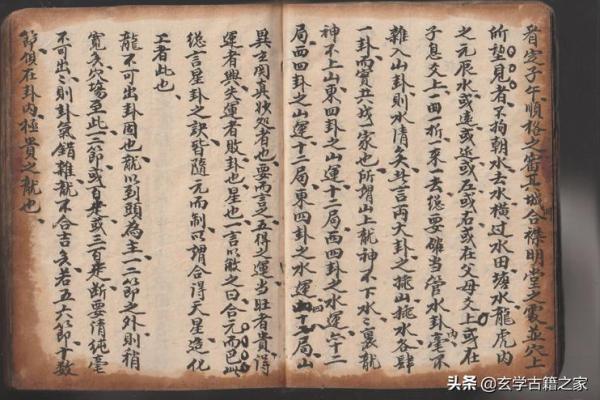 看定子午順格之審其城合襟明堂之處並穴上
所望見者不拘朝水去水橫過水田塘水龍虎內
之元辰水或遠或近或左或右或在父母爻上或在
子息爻上一曲一折一來一去總要確當管水卦內毫不
雜入山卦則水清矣卦言兩大卦之挨山挨水各
一卦而實共成一家也所謂山上龍神不下水水裏龍
神不上山東四卦之山運十二局西四卦之水運亦十二
局西四卦之山運十二局東四卦之水運十二局山
異玄関真妙処者也要而言之五得之運當旺者貴得
運者興失運者敗卦也星也一言以敝之曰合元而已此
總言星卦之訣皆隨元而制以謂合得天星造化
工者此也
龍不可出卦固也龍以到頭為主一二節之外則稍
寬矣穴場至此一二節或百步或三百步断要清純毫
不可出出則卦氣錯雜龍不合吉矣若五六節十數
節俱在卦內極貴之龍也
头条 @玄学古籍之家